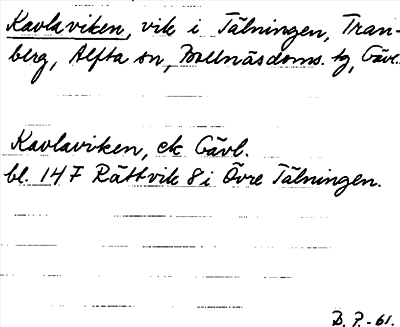 Kavlaviken, vik i Tälningen, Tran-
berg, Alfta sn, Bollnäs doms. tg, Gävl.
Kavlaviken, ek Gävl.
bl. 14 F Rättvik 8 i Övre Tälningen.
B. P. -61.